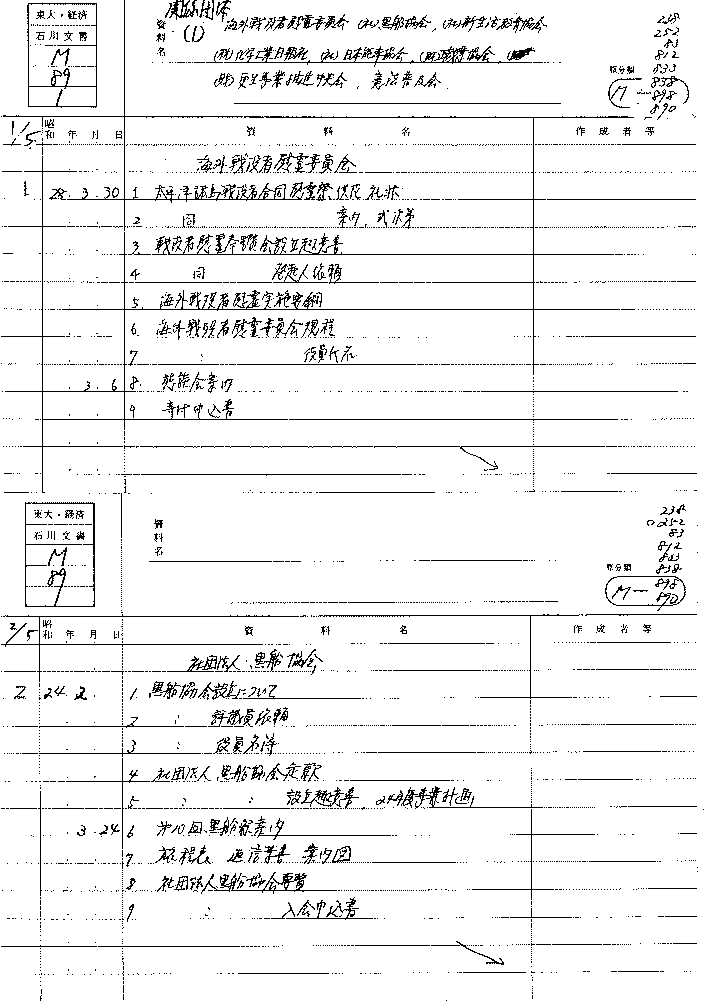 東大・経済
石川文書
M
89
1
資料名
関係団体
(1)
海外戦没者慰霊委員会 (社)黒船協会, (社)新生活教育協会
(株)化学工業日報社, (社)日本能率協会,
会, 憲法普及会
238
252
83
812
833
838
M-898
890
原分類
1/5
昭和 年 月 日
資料名
作成者等
海外戦没者慰霊委員会
1 28.3.30 1 太平洋諸島戦没者合同慰霊祭、供花礼状
2 同 案内、式次第
3 戦没者慰霊奉賛会設立趣意書
4 同 発起人依頼
5. 海外戦没者慰霊実施要綱
6. 海外戦没者慰霊委員会規程
7 : 役員氏名
3.6 8. 懇談会案内
9 寄付申込書
東大・経済
石川文書
M
89
1
資料名
238
252
83
812
833
838
M-898
890
原分類
2/5
昭和 年 月 日
資料名
作成者等
社団法人・黒船協会
2 24.2. 1. 黒船協会設立について
2 : 評議員依頼
3 : 役員名簿
4 社団法人 黒船協会定款
5 : : 設立趣意書, 24年度事業計画
3.24 6 第10回黒船祭案内
7. 旅程表 通信葉書 案内図
8 社団法人黒船協会要覧
9 : 入会申込書